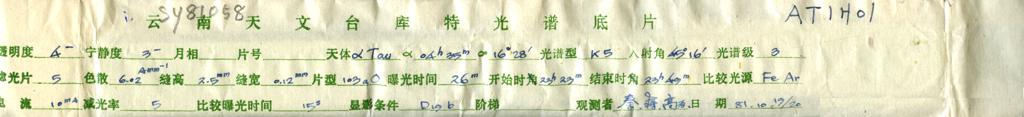 SY81058
i. 云南天文台库特光谱底片 AT1H01
透明度 4⁻ 宁静度 3⁻ 月相 片号 天体 α Tau α 04ʰ35ᵐ δ 16°28′ 光谱型 K5 入射角 45°16′ 光谱级 3
滤光片 5 色散 6.02 Åmm⁻¹ 缝高 2.5ᵐᵐ 缝宽 0.12ᵐᵐ 片型 103aO 曝光时间 26ᵐ 开始时角 23ʰ23ᵐ 结束时角 23ʰ49ᵐ 比较光源 Fe Ar
电流 10mA 减光率 5 比较曝光时间 15ˢ 显影条件 D19b 阶梯 观测者 日期 81.10.19/20